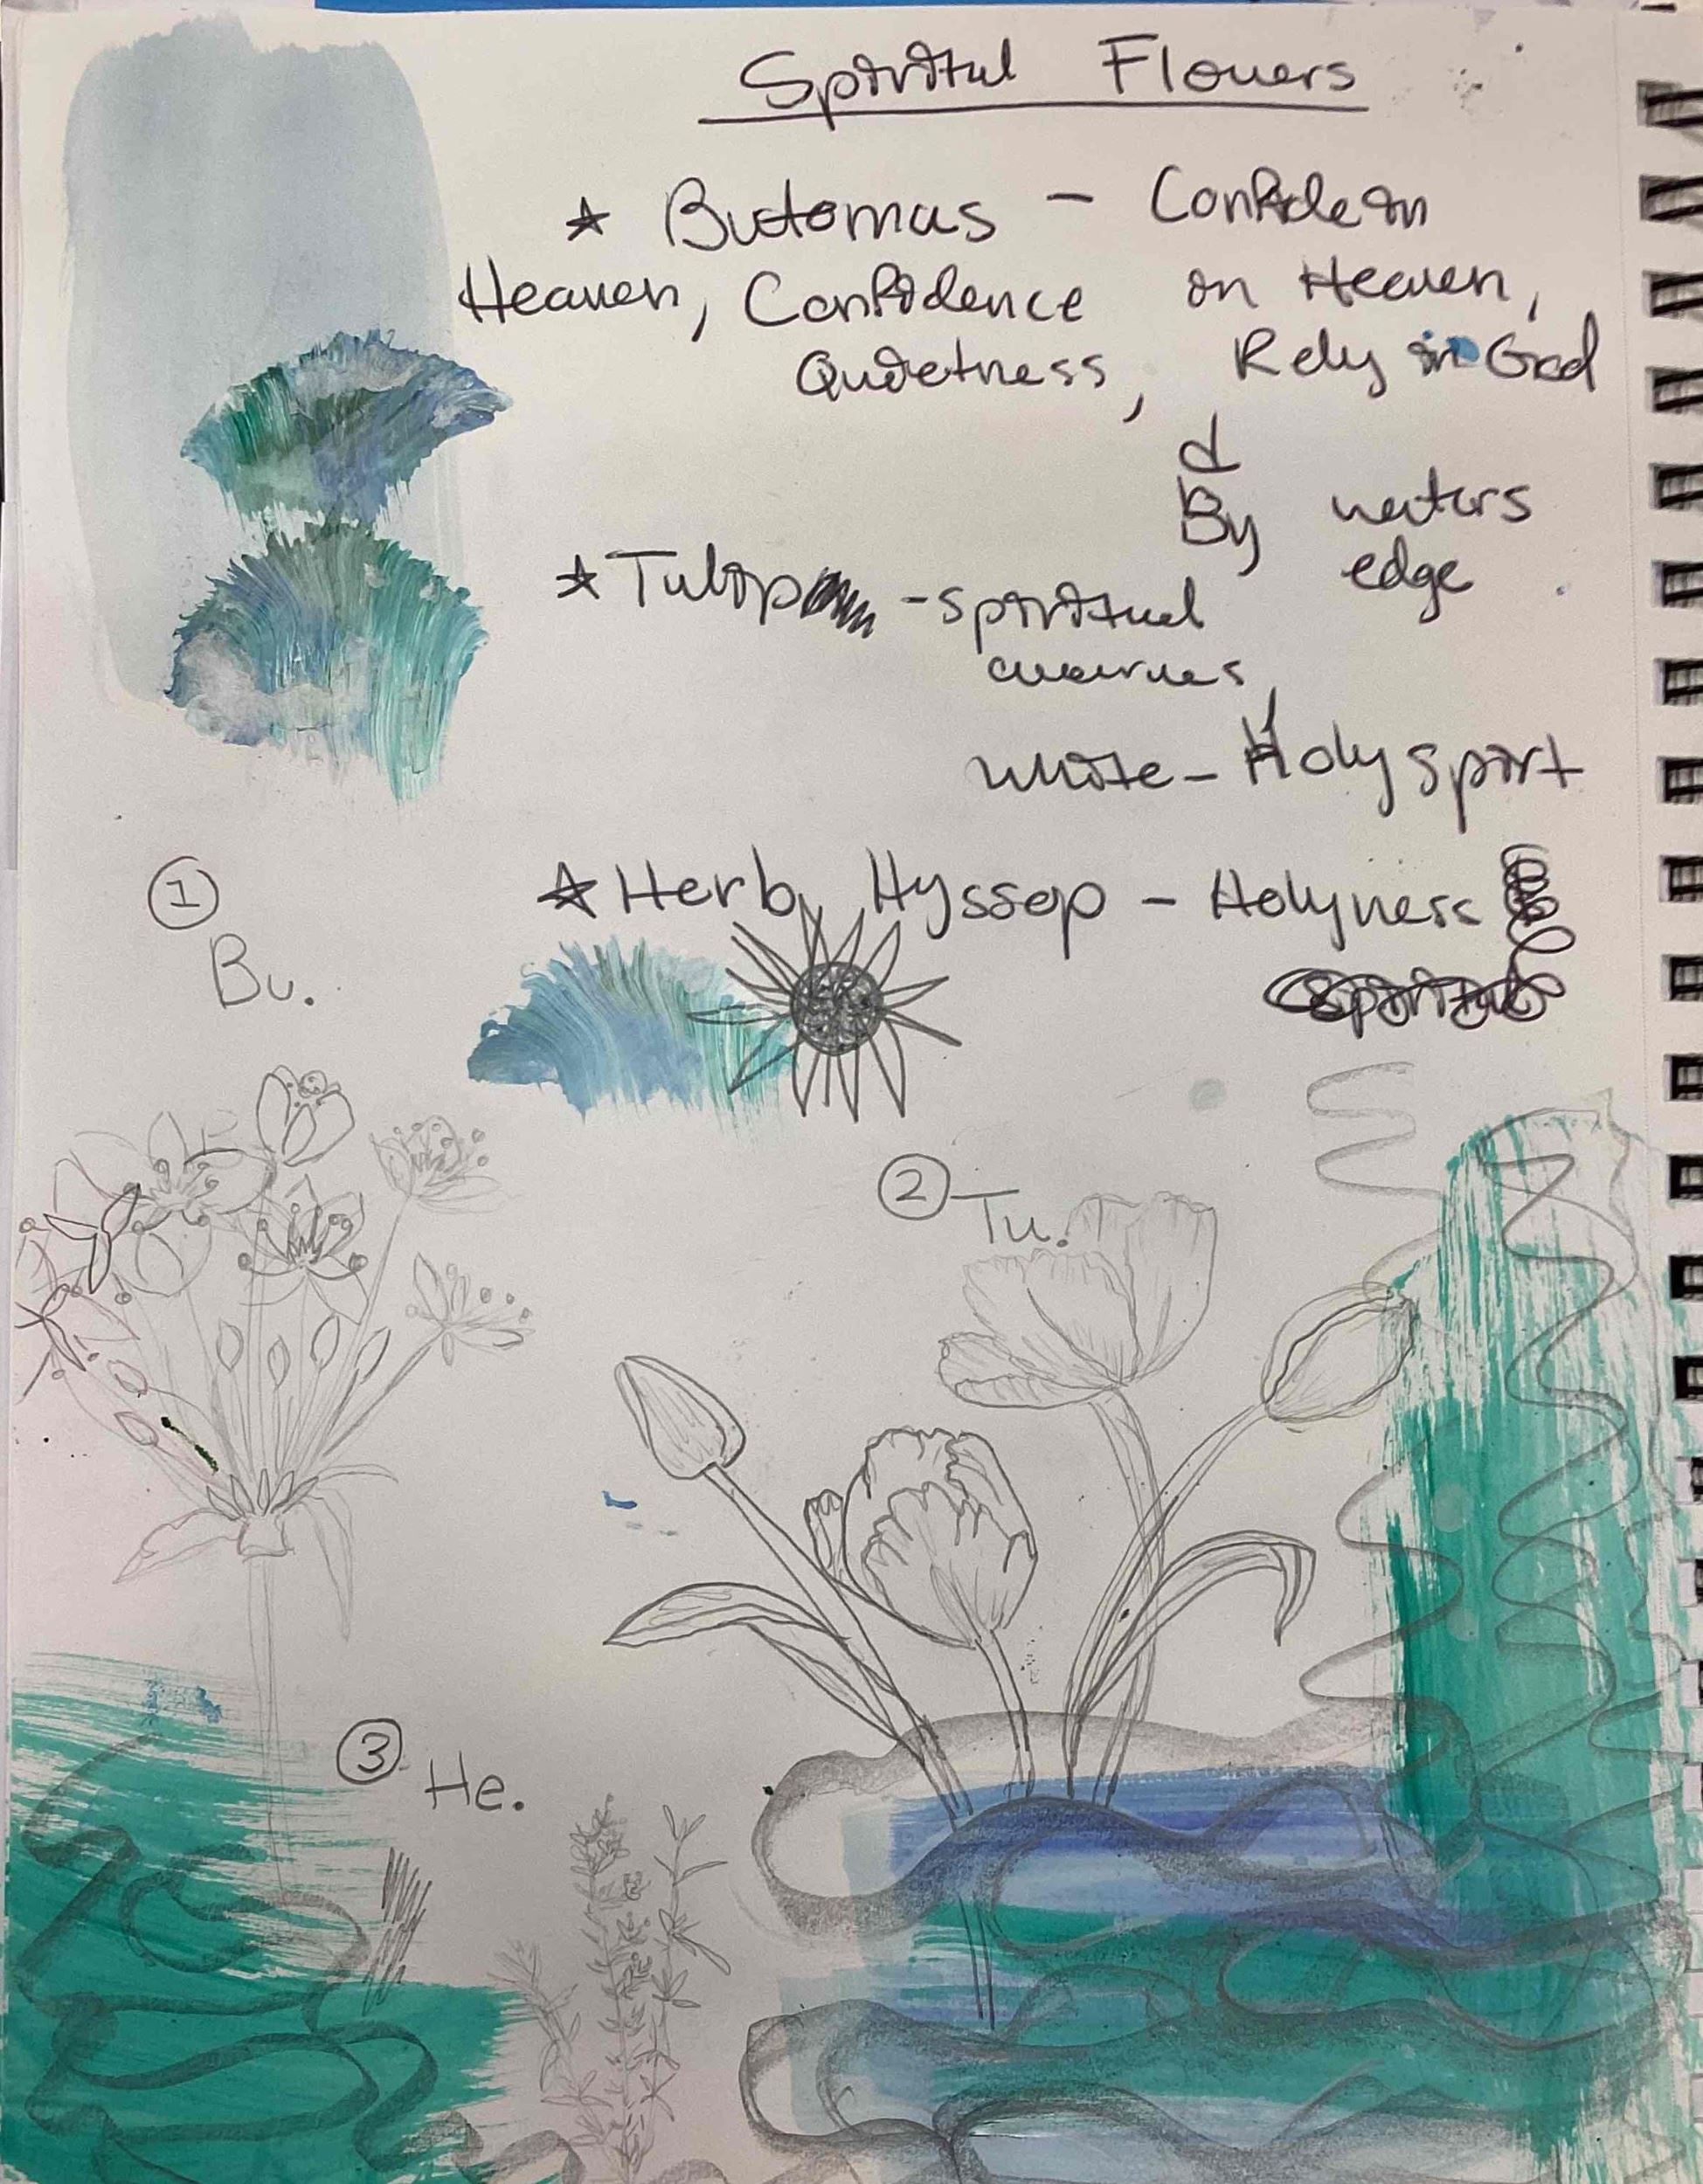 Spiritul Flowers
★ Butomus - Confide in
Heaven, Confidence in Heaven,
Quietness, Rely in God
&
By waters
edge
★ Tulip - spiritual
awarnes,
white - Holy spirt
★ Herb, Hyssop - Holyness
① Bu.
② Tu.
③ He.